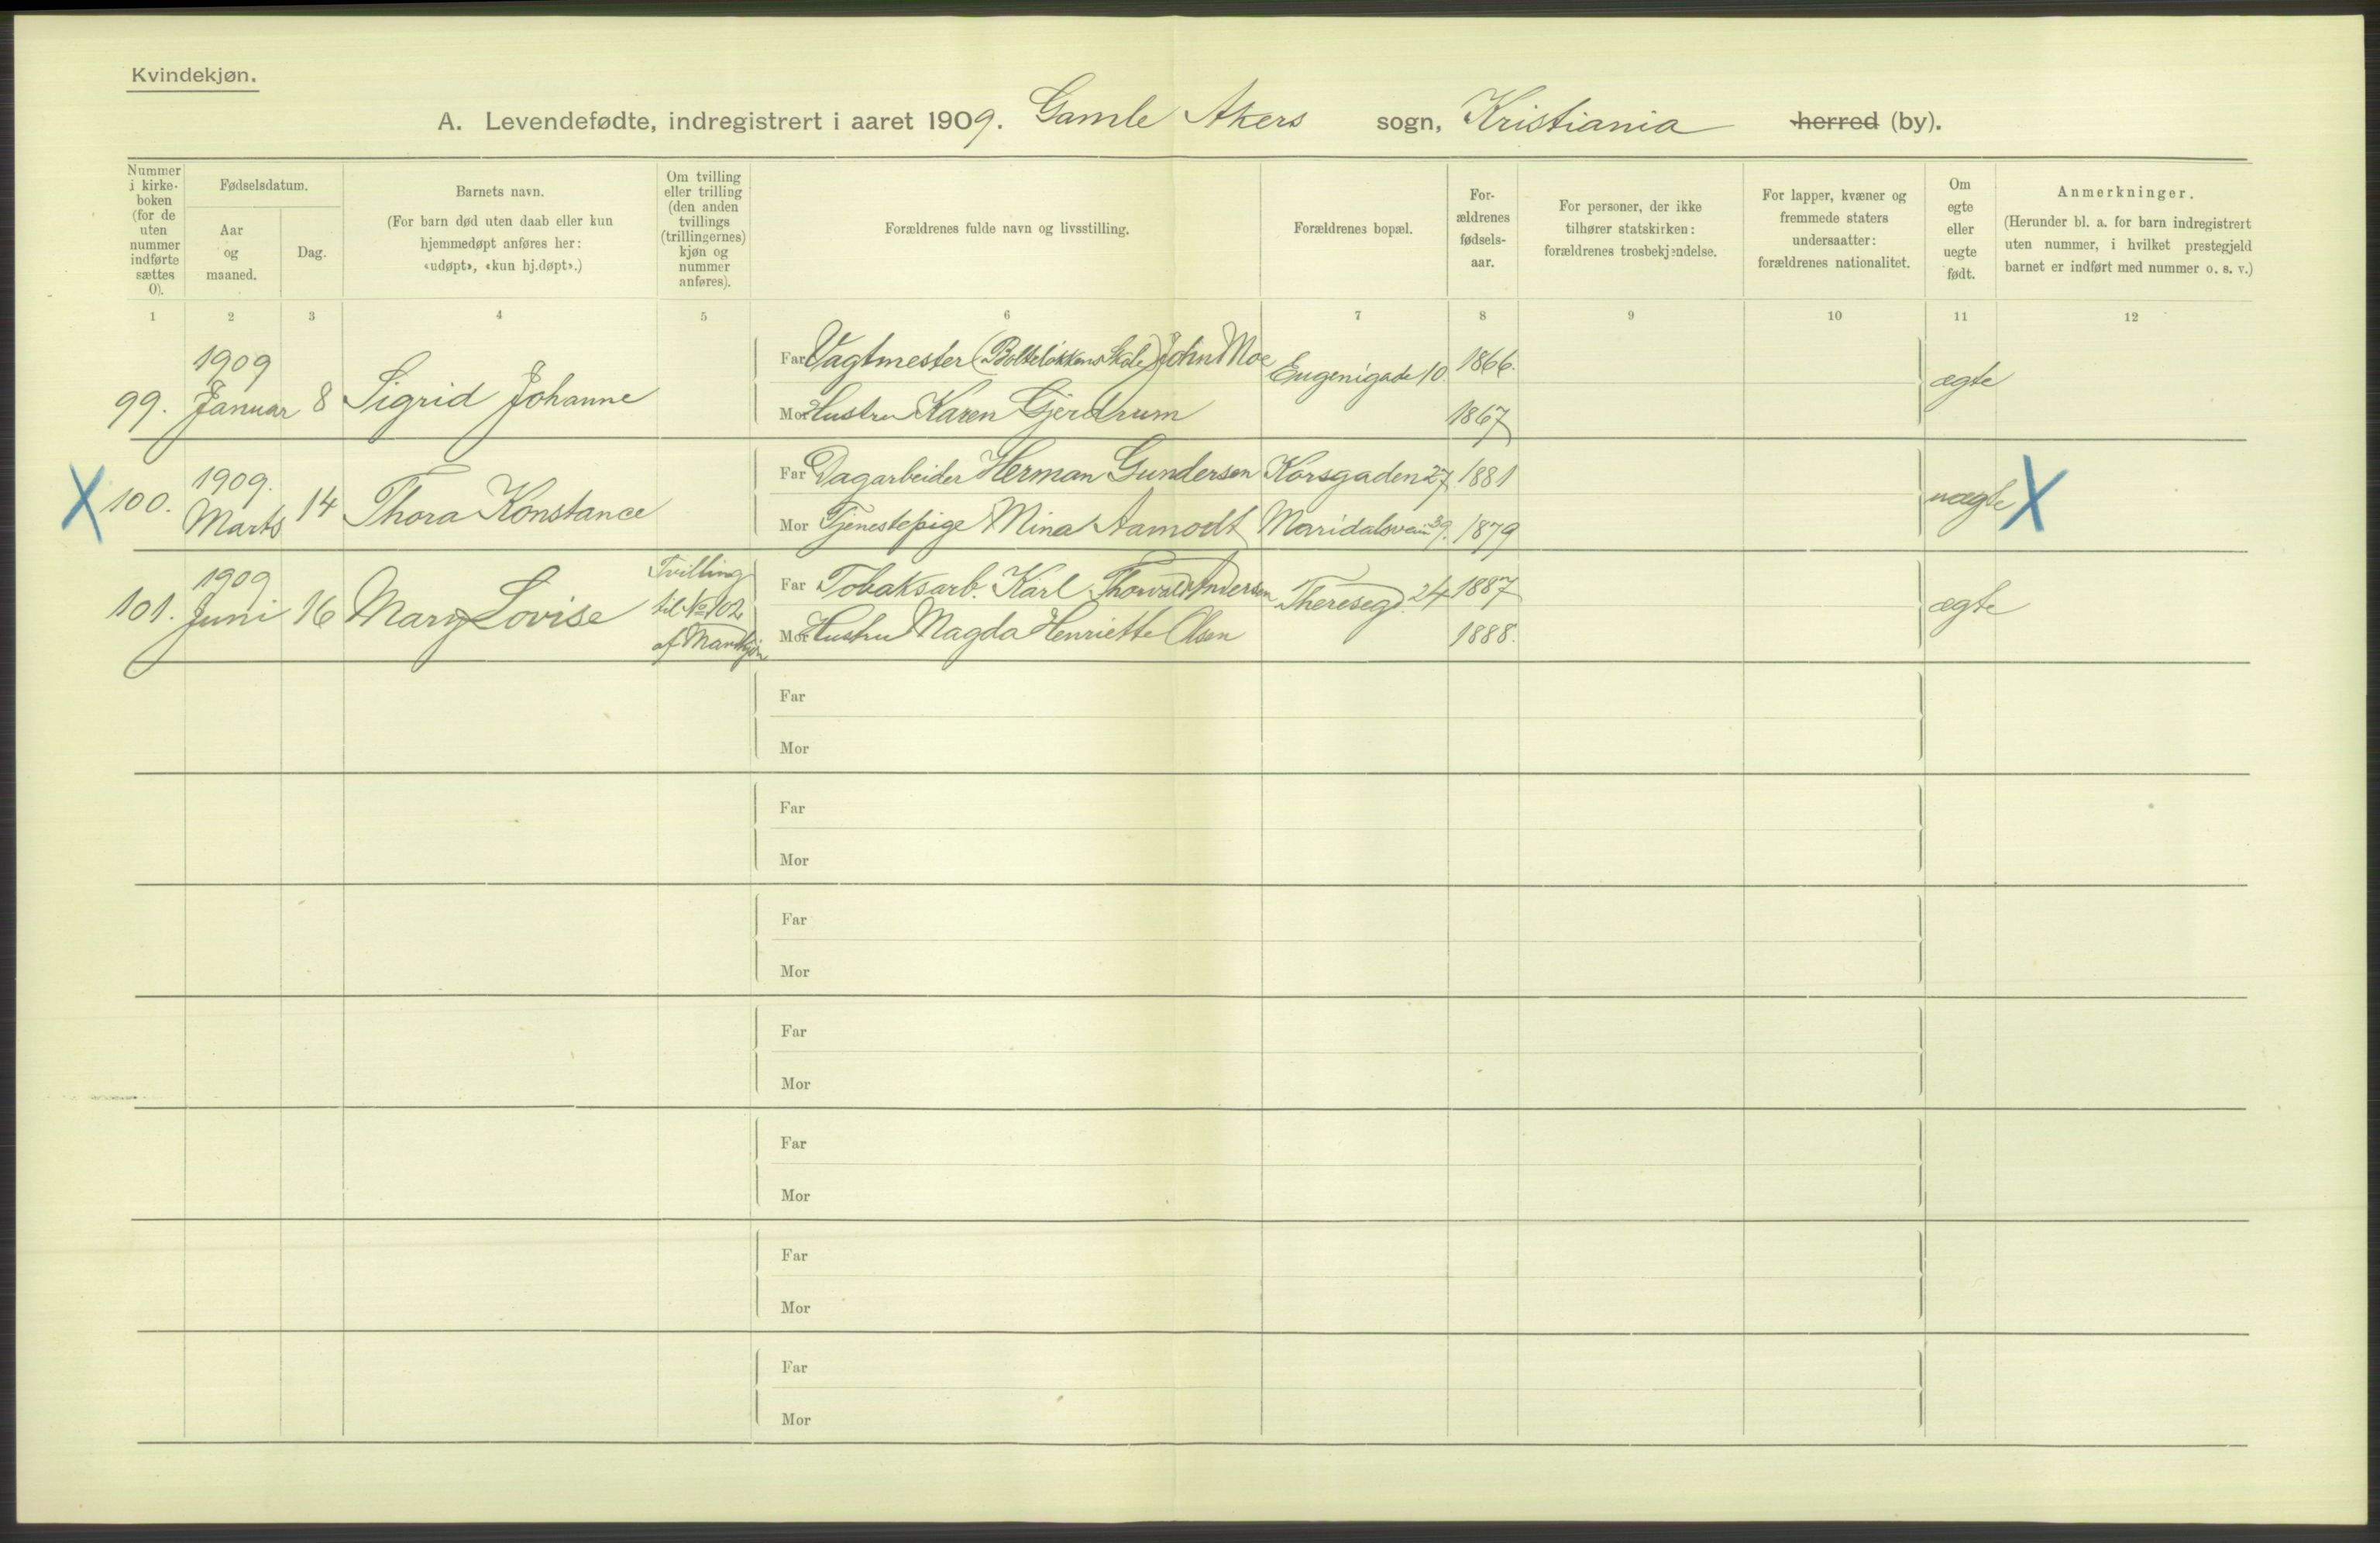 Kvindekjøn.
A. Levendefødte, indregistrert i aaret 1909. Gamle Akers sogn, Kristiania herred (by).
Nummer i kirkeboken (for de uten nummer indførte sættes 0).
Fødselsdatum.
Aar og maaned.
Dag.
Barnets navn.
(For barn død uten daab eller kun hjemmedøpt anføres her: «udøpt», «kun hj.døpt».)
Om tvilling eller trilling (den anden tvillings (trillingernes) kjøn og nummer anføres).
Forældrenes fulde navn og livsstilling.
Forældrenes bopæl.
Forældrenes fødselsaar.
For personer, der ikke tilhører statskirken: forældrenes trosbekjendelse.
For lapper, kvæner og fremmede staters undersaatter: forældrenes nationalitet.
Om egte eller uegte født.
Anmerkninger.
(Herunder bl. a. for barn indregistrert uten nummer, i hvilket prestegjeld barnet er indført med nummer o. s. v.)
1 2 3 4 5 6 7 8 9 10 11 12
99. 1909 Januar 8 Sigrid Johanne
Far Vagtmester (Bolteløkkens Skole) John Moe Eugenigade 10. 1866. ægte
Mor Hustru Karen Gjerdrum 1867
X 100. 1909. Marts 14 Thora Konstance
Far Dagarbeider Herman Gundersen Korsgaden 27 1881 uægte X
Mor Tjenestepige Mina Aamodt Maridalsvein 39. 1879
101. 1909 Juni 16 Mary Lovise Tvilling til No 102 af Mandkjøn
Far Tobaksarb. Karl Thorvald Andersen Theresegd. 24 1887 ægte
Mor Hustru Magda Henriette Olsen 1888.
Far
Mor
Far
Mor
Far
Mor
Far
Mor
Far
Mor
Far
Mor
Far
Mor